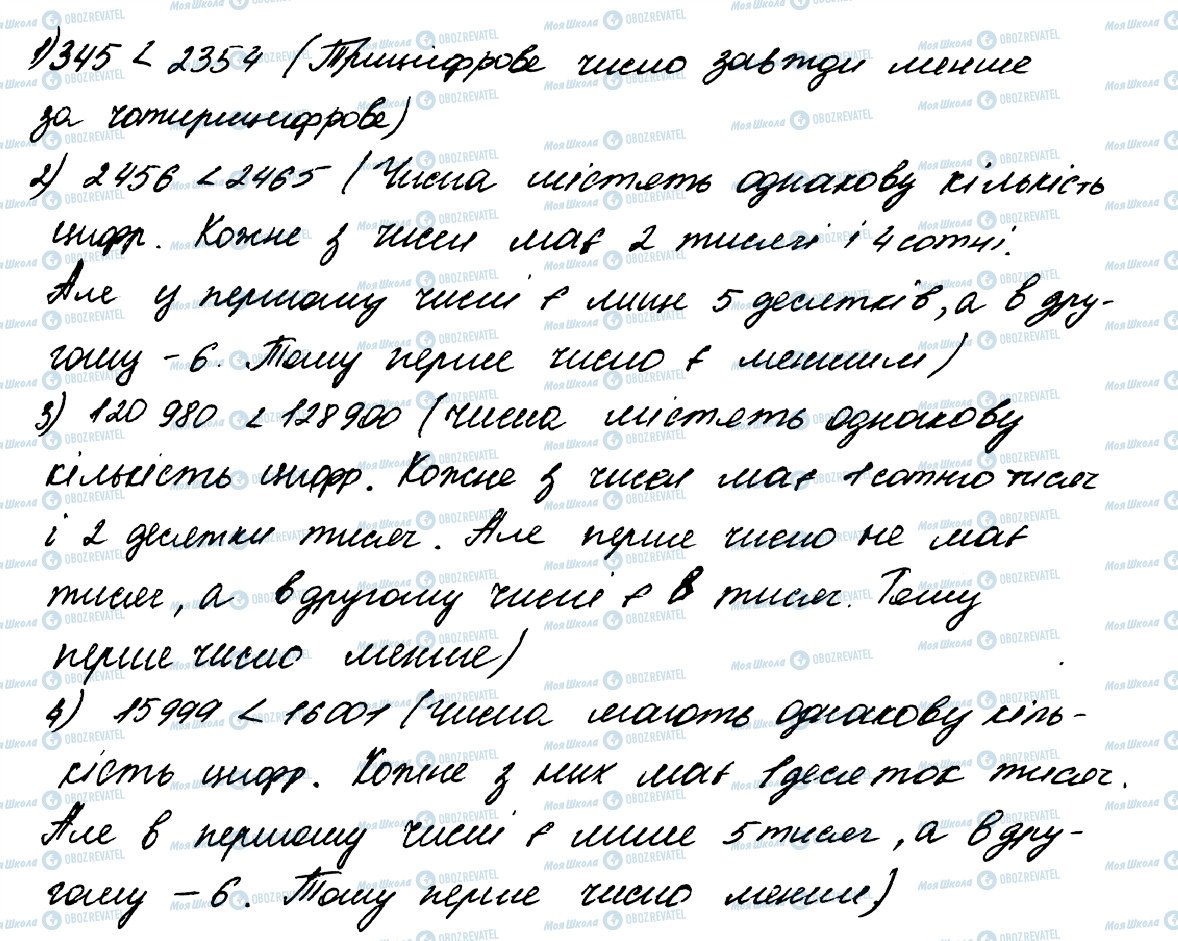 1) 345 < 2354 (Трицифрове число завжди менше
за чотирицифрове)
2) 2456 < 2465 (Числа містять однакову кількість
цифр. Кожне з чисел має 2 тисячі і 4 сотні.
Але у першому числі є лише 5 десятків, а в дру-
гому - 6. Тому перше число є меншим)
3) 120 980 < 128900 (Числа містять однакову
кількість цифр. Кожне з чисел має 1 сотню тисяч
і 2 десятки тисяч. Але перше число не має
тисяч, а в другому числі є 8 тисяч. Тому
перше число менше)
4) 15999 < 16001 (Числа мають однакову кіль-
кість цифр. Кожне з них має 1 десяток тисяч.
Але в першому числі є лише 5 тисяч, а в дру-
гому - 6. Тому перше число менше)